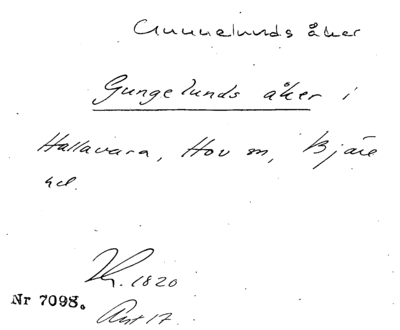 Gunnelunds åker
Gungelunds åker i
Hallavara, Hov sn, Bjäre
hd.
1820
Nr 7098.
Akt 17.